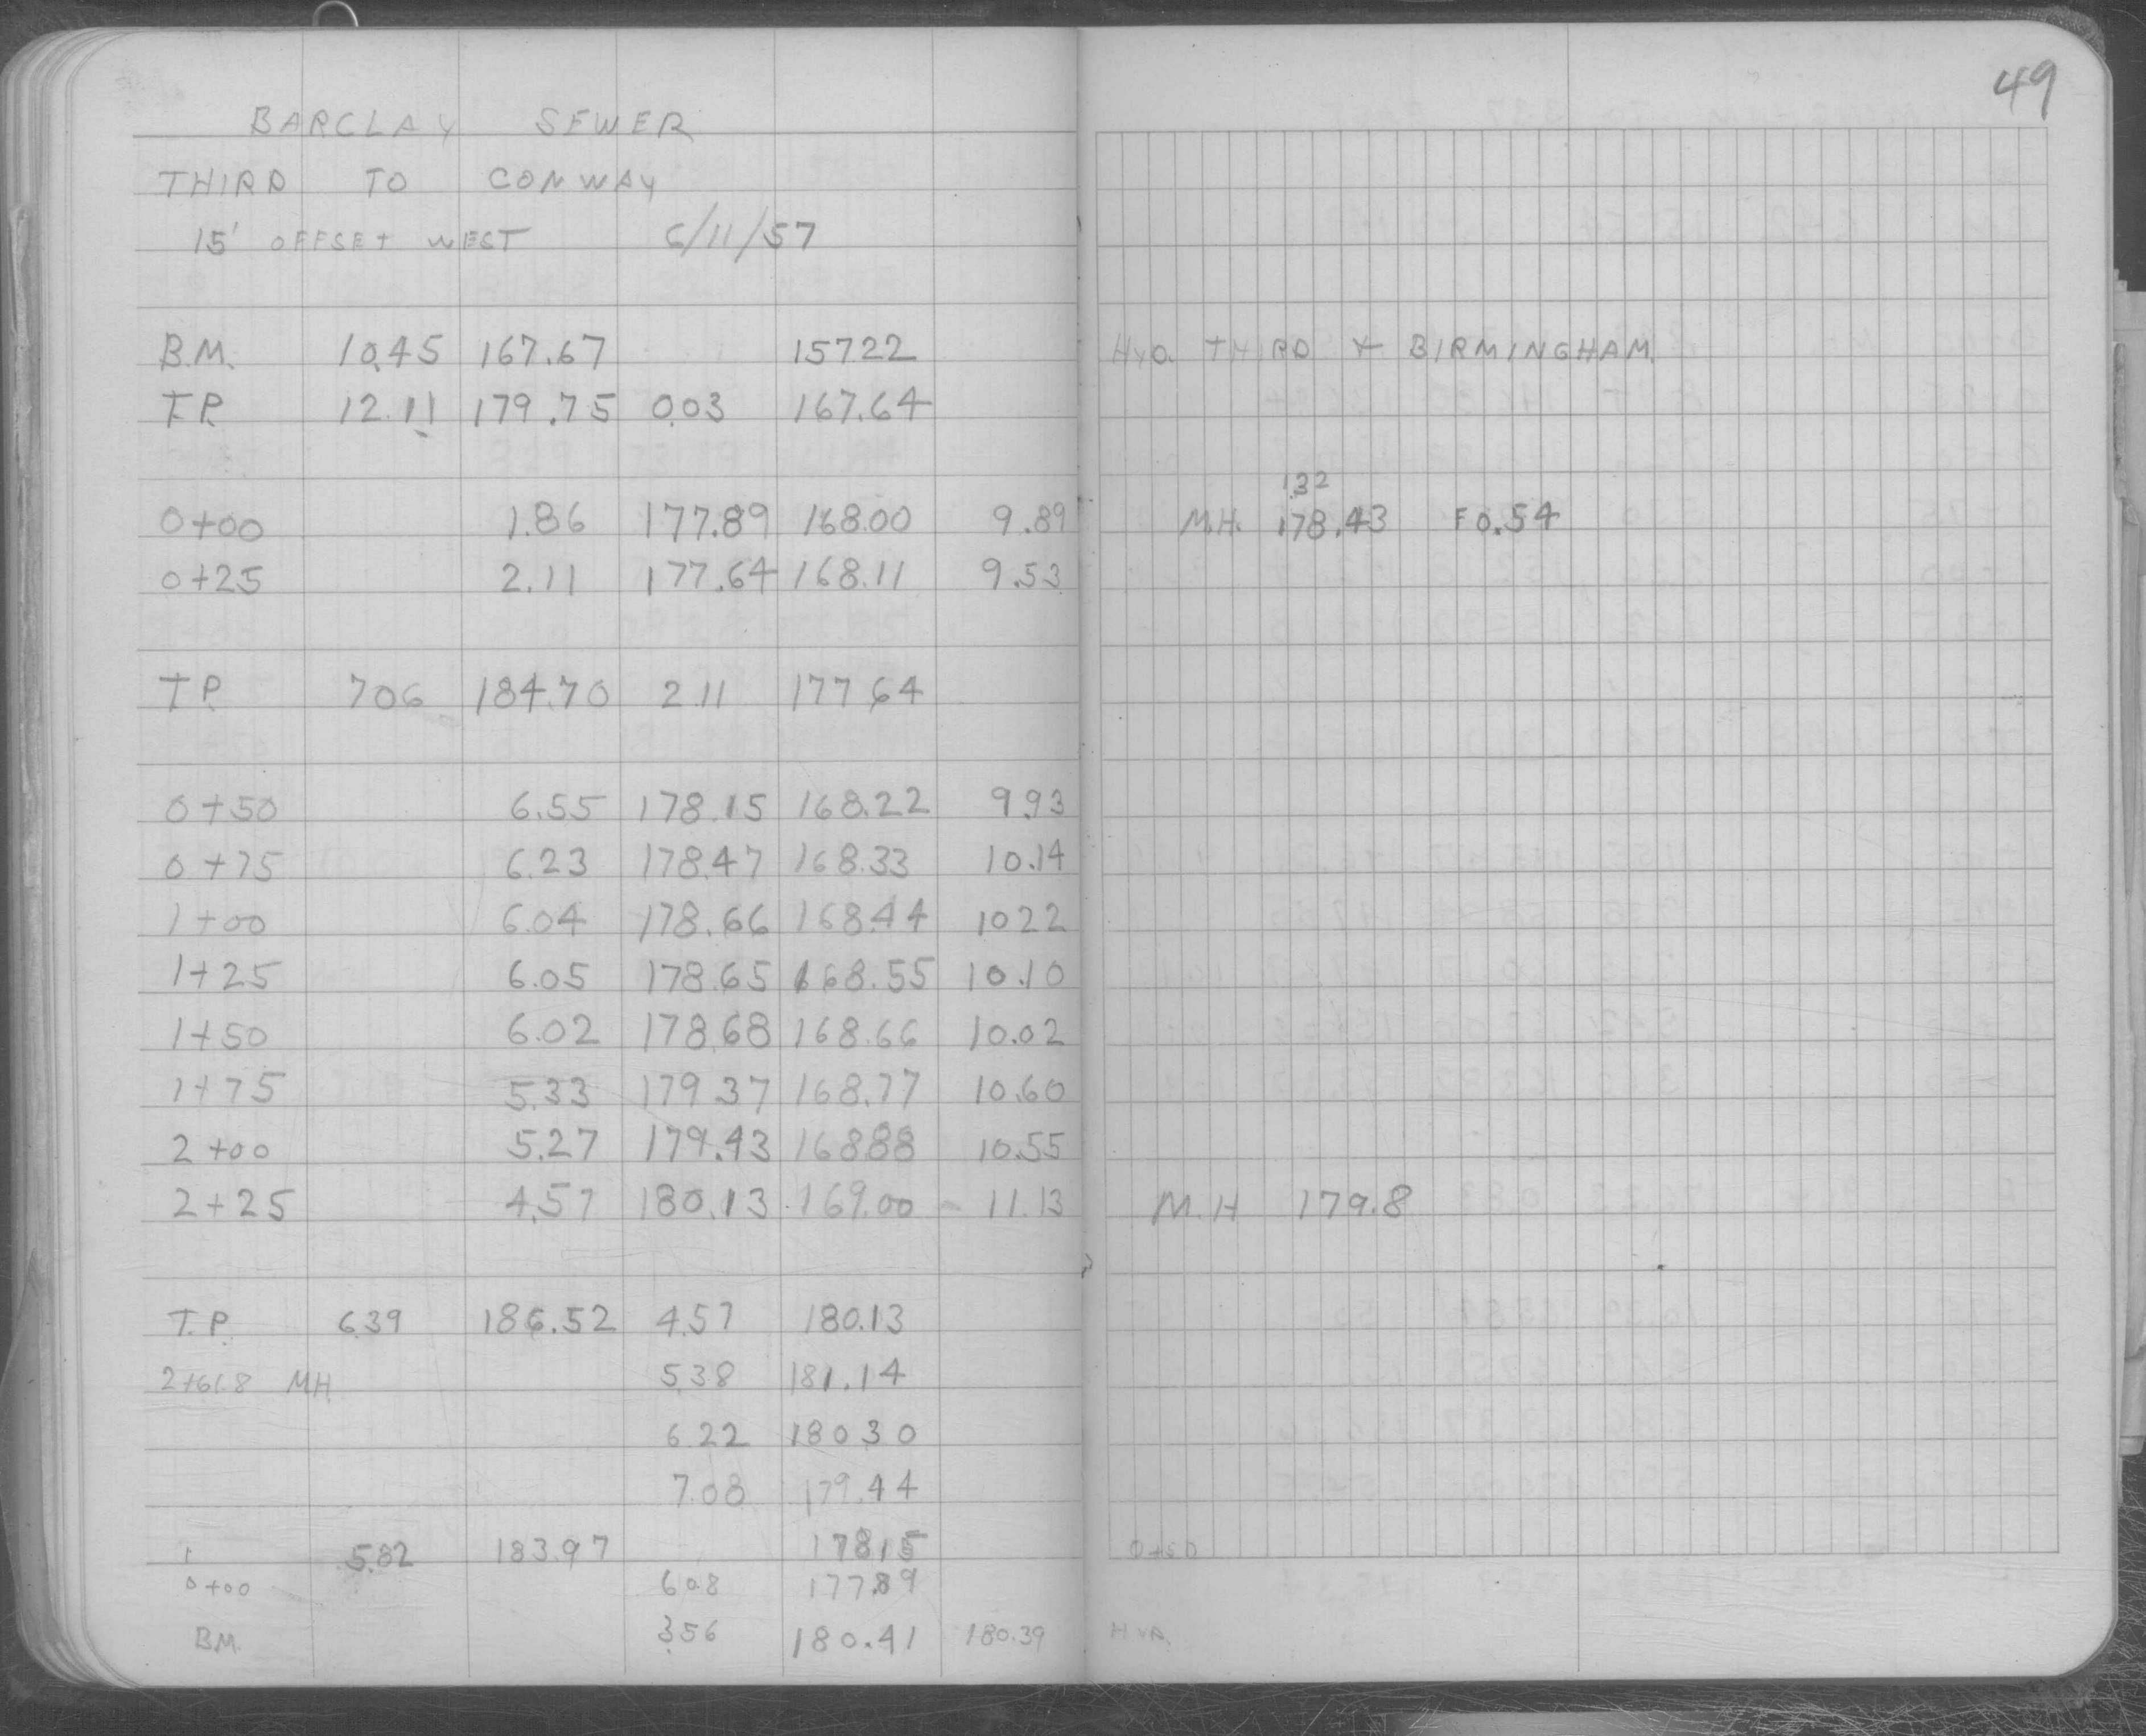 49
BARCLAY SEWER
THIRD TO CONWAY
15' OFFSET WEST 6/11/57
B.M. 10.45 167.67 157.22 HYD. THIRD + BIRMINGHAM
T.P. 12.11 179.75 0.03 167.64
1.32
0+00 1.86 177.89 168.00 9.89 M.H. 178.43 F 0.54
0+25 2.11 177.64 168.11 9.53
T.P. 7.06 184.70 2.11 177.64
0+50 6.55 178.15 168.22 9.93
0+75 6.23 178.47 168.33 10.14
1+00 6.04 178.66 168.44 10.22
1+25 6.05 178.65 168.55 10.10
1+50 6.02 178.68 168.66 10.02
1+75 5.33 179.37 168.77 10.60
2+00 5.27 179.43 168.88 10.55
2+25 4.57 180.13 169.00 11.13 M.H 179.8
T.P. 6.39 186.52 4.57 180.13
2+61.8 MH 5.38 181.14
6.22 180.30
7.08 179.44
5.82 183.97 178.15 0+50
0+00 6.08 177.89
B.M. 3.56 180.41 180.39 HYD.